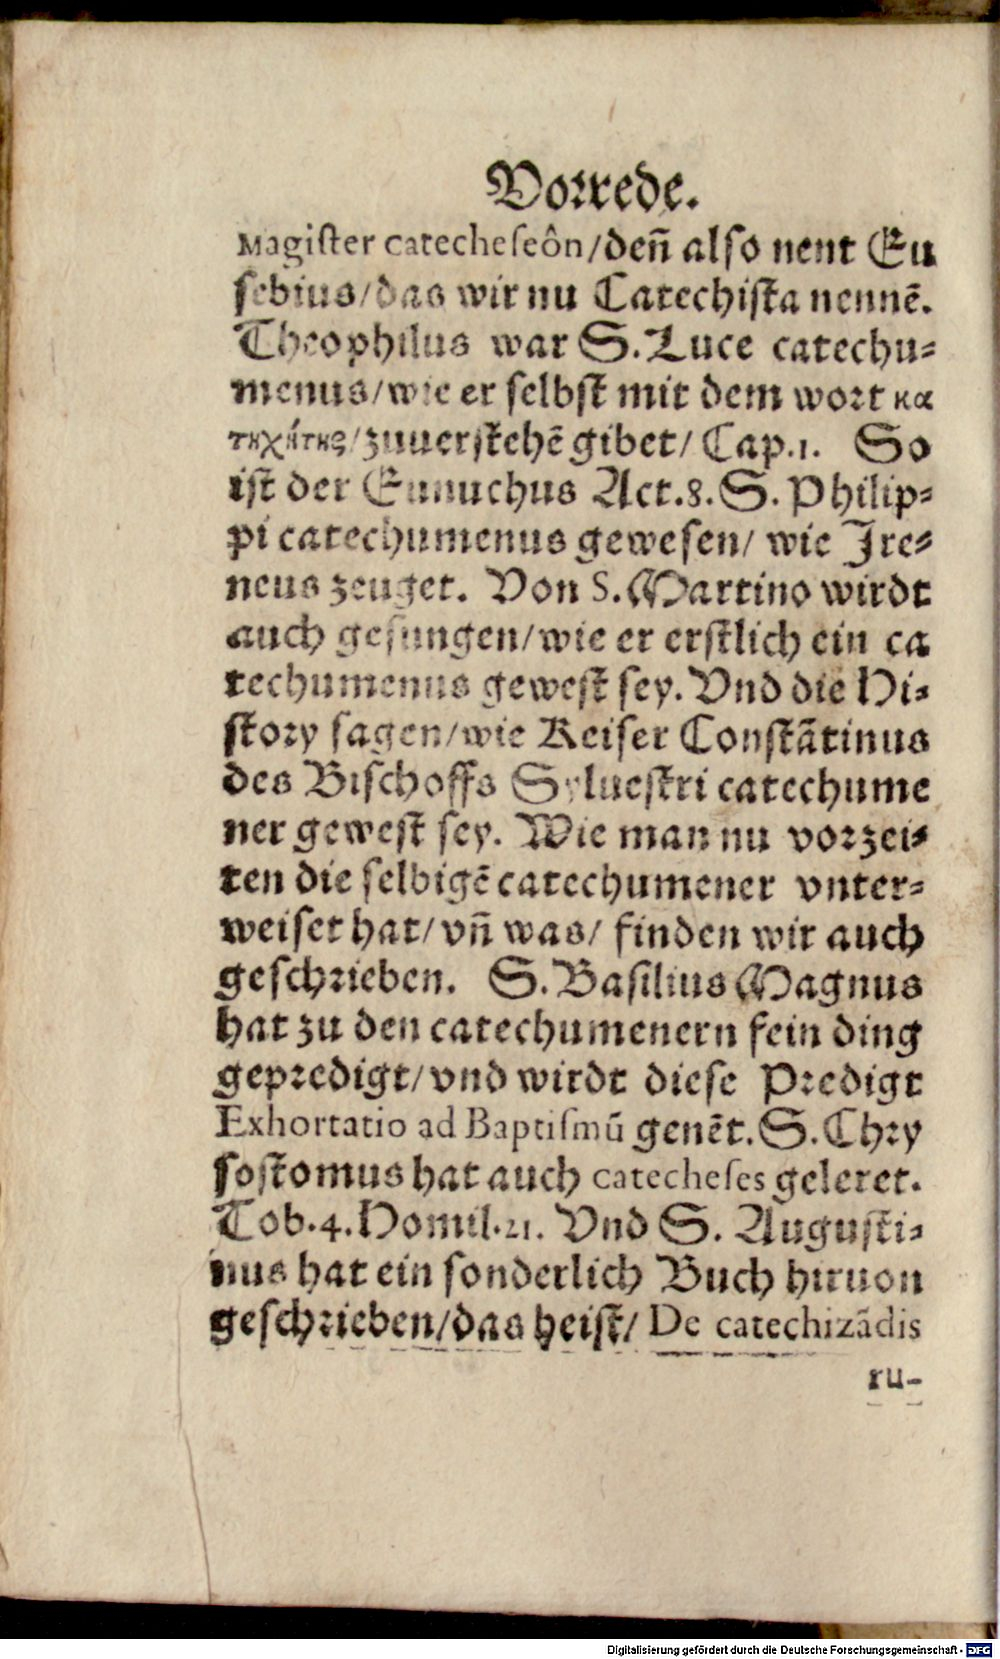 Vorrede.
Magister catecheseôn/deñ also nent Eu
sebius/das wir nu Catechista nennē.
Theophilus war S. Luce catechu⸗
menus/wie er selbst mit dem wort κα
/zuuerstehē gibet/ Cap.1. So
ist der Eunuchus Act.8. S. Philip⸗
pi catechumenus gewesen/ wie Ire⸗
neus zeuget. Von S. Martino wirdt
auch gesungen/wie er erstlich ein ca
techumenus gewest sey. Vnd die Hi⸗
story sagen/wie Keiser Constãtinus
des Bischoffs Syluestri catechume
ner gewest sey. Wie man nu vorzei⸗
ten die selbigē catechumener vnter⸗
weiset hat/ vñ was/ finden wir auch
geschrieben. S. Basilius Magnus
hat zu den catechumenern fein ding
gepredigt/vnd wirdt diese Predigt
Exhortatio ad Baptismũ genēt. S. Chry
sostomus hat auch catecheses geleret.
Tob.4. Homil.21. Vnd S. Augusti⸗
nus hat ein sonderlich Buch hiruon
geschrieben/das heist/ De catechizãdis
ru-
Digitalisierung gefördert durch die Deutsche Forschungsgemeinschaft - DFG